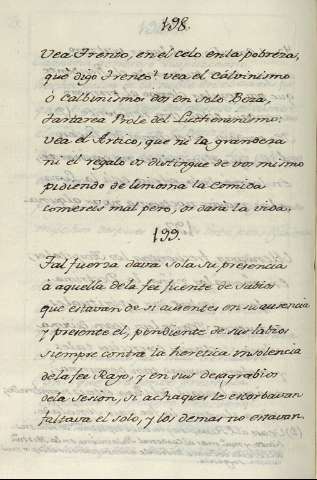 198.
Vea Trento, en el celo en la pobreza,
què digo Trento? vea el Calvinismo
ò Calbinismos dos en solo Beza,
tartarea Prole del Lutheranismo:
vea el Artico, que ni la grandeza
ni el regalo os distingue de vos mismo
pidiendo de limosna la Comida
comereis mal pero, os dará la vida.
199.
Tal fuerza dava sola su presencia
à aquella de la fee fuente de sabios
que estavan de si ausentes en su ausencia
y presente el, pendiente de sus labios
siempre contra la heretica insolencia
de la fee Rayo, y en sus desagrabios
de la Sesion, si achaques le estorbavan
faltava el solo, y los demas no estavan.